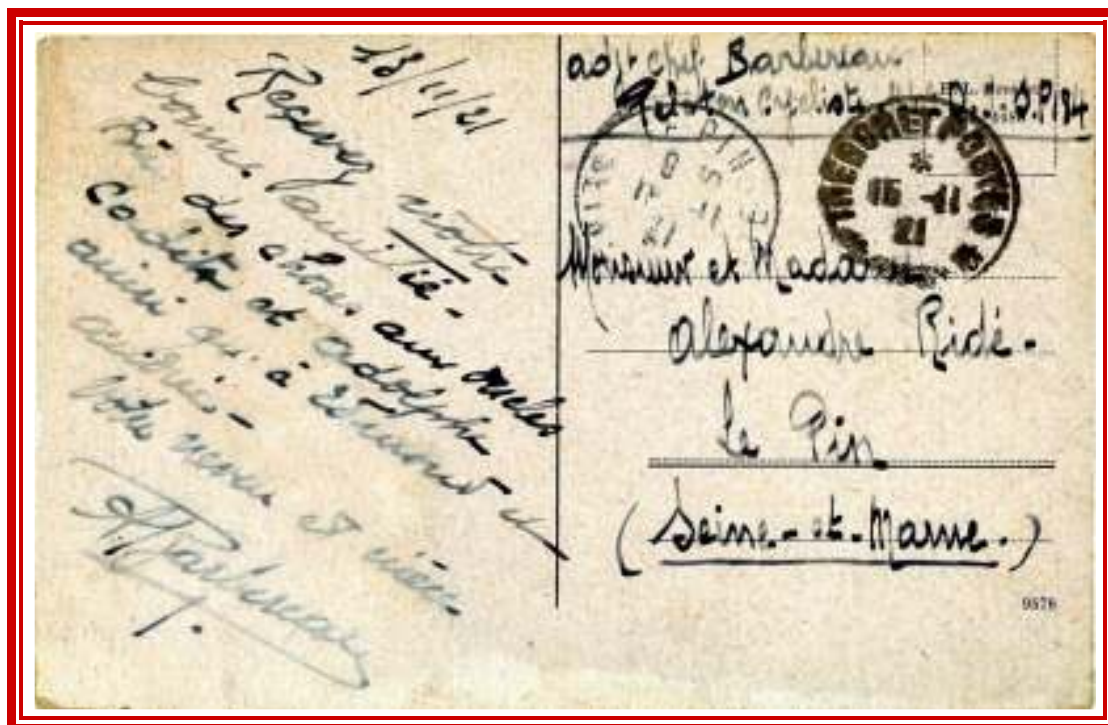 13/11/21
Recevez votre
bonne amitié.
Bien des choses aux oncles
et adolphe
ainsi qu'à Edmond et
Votre neveu et nièce
Barbereau
adjt chef Barbereau
Peloton Cycliste S.P. 184
TRESOR ET POSTES
*
15 - 11
21
Monsieur et Madame
alexandre Ridé.
le Pin
(Seine-et-Marne.)
9578